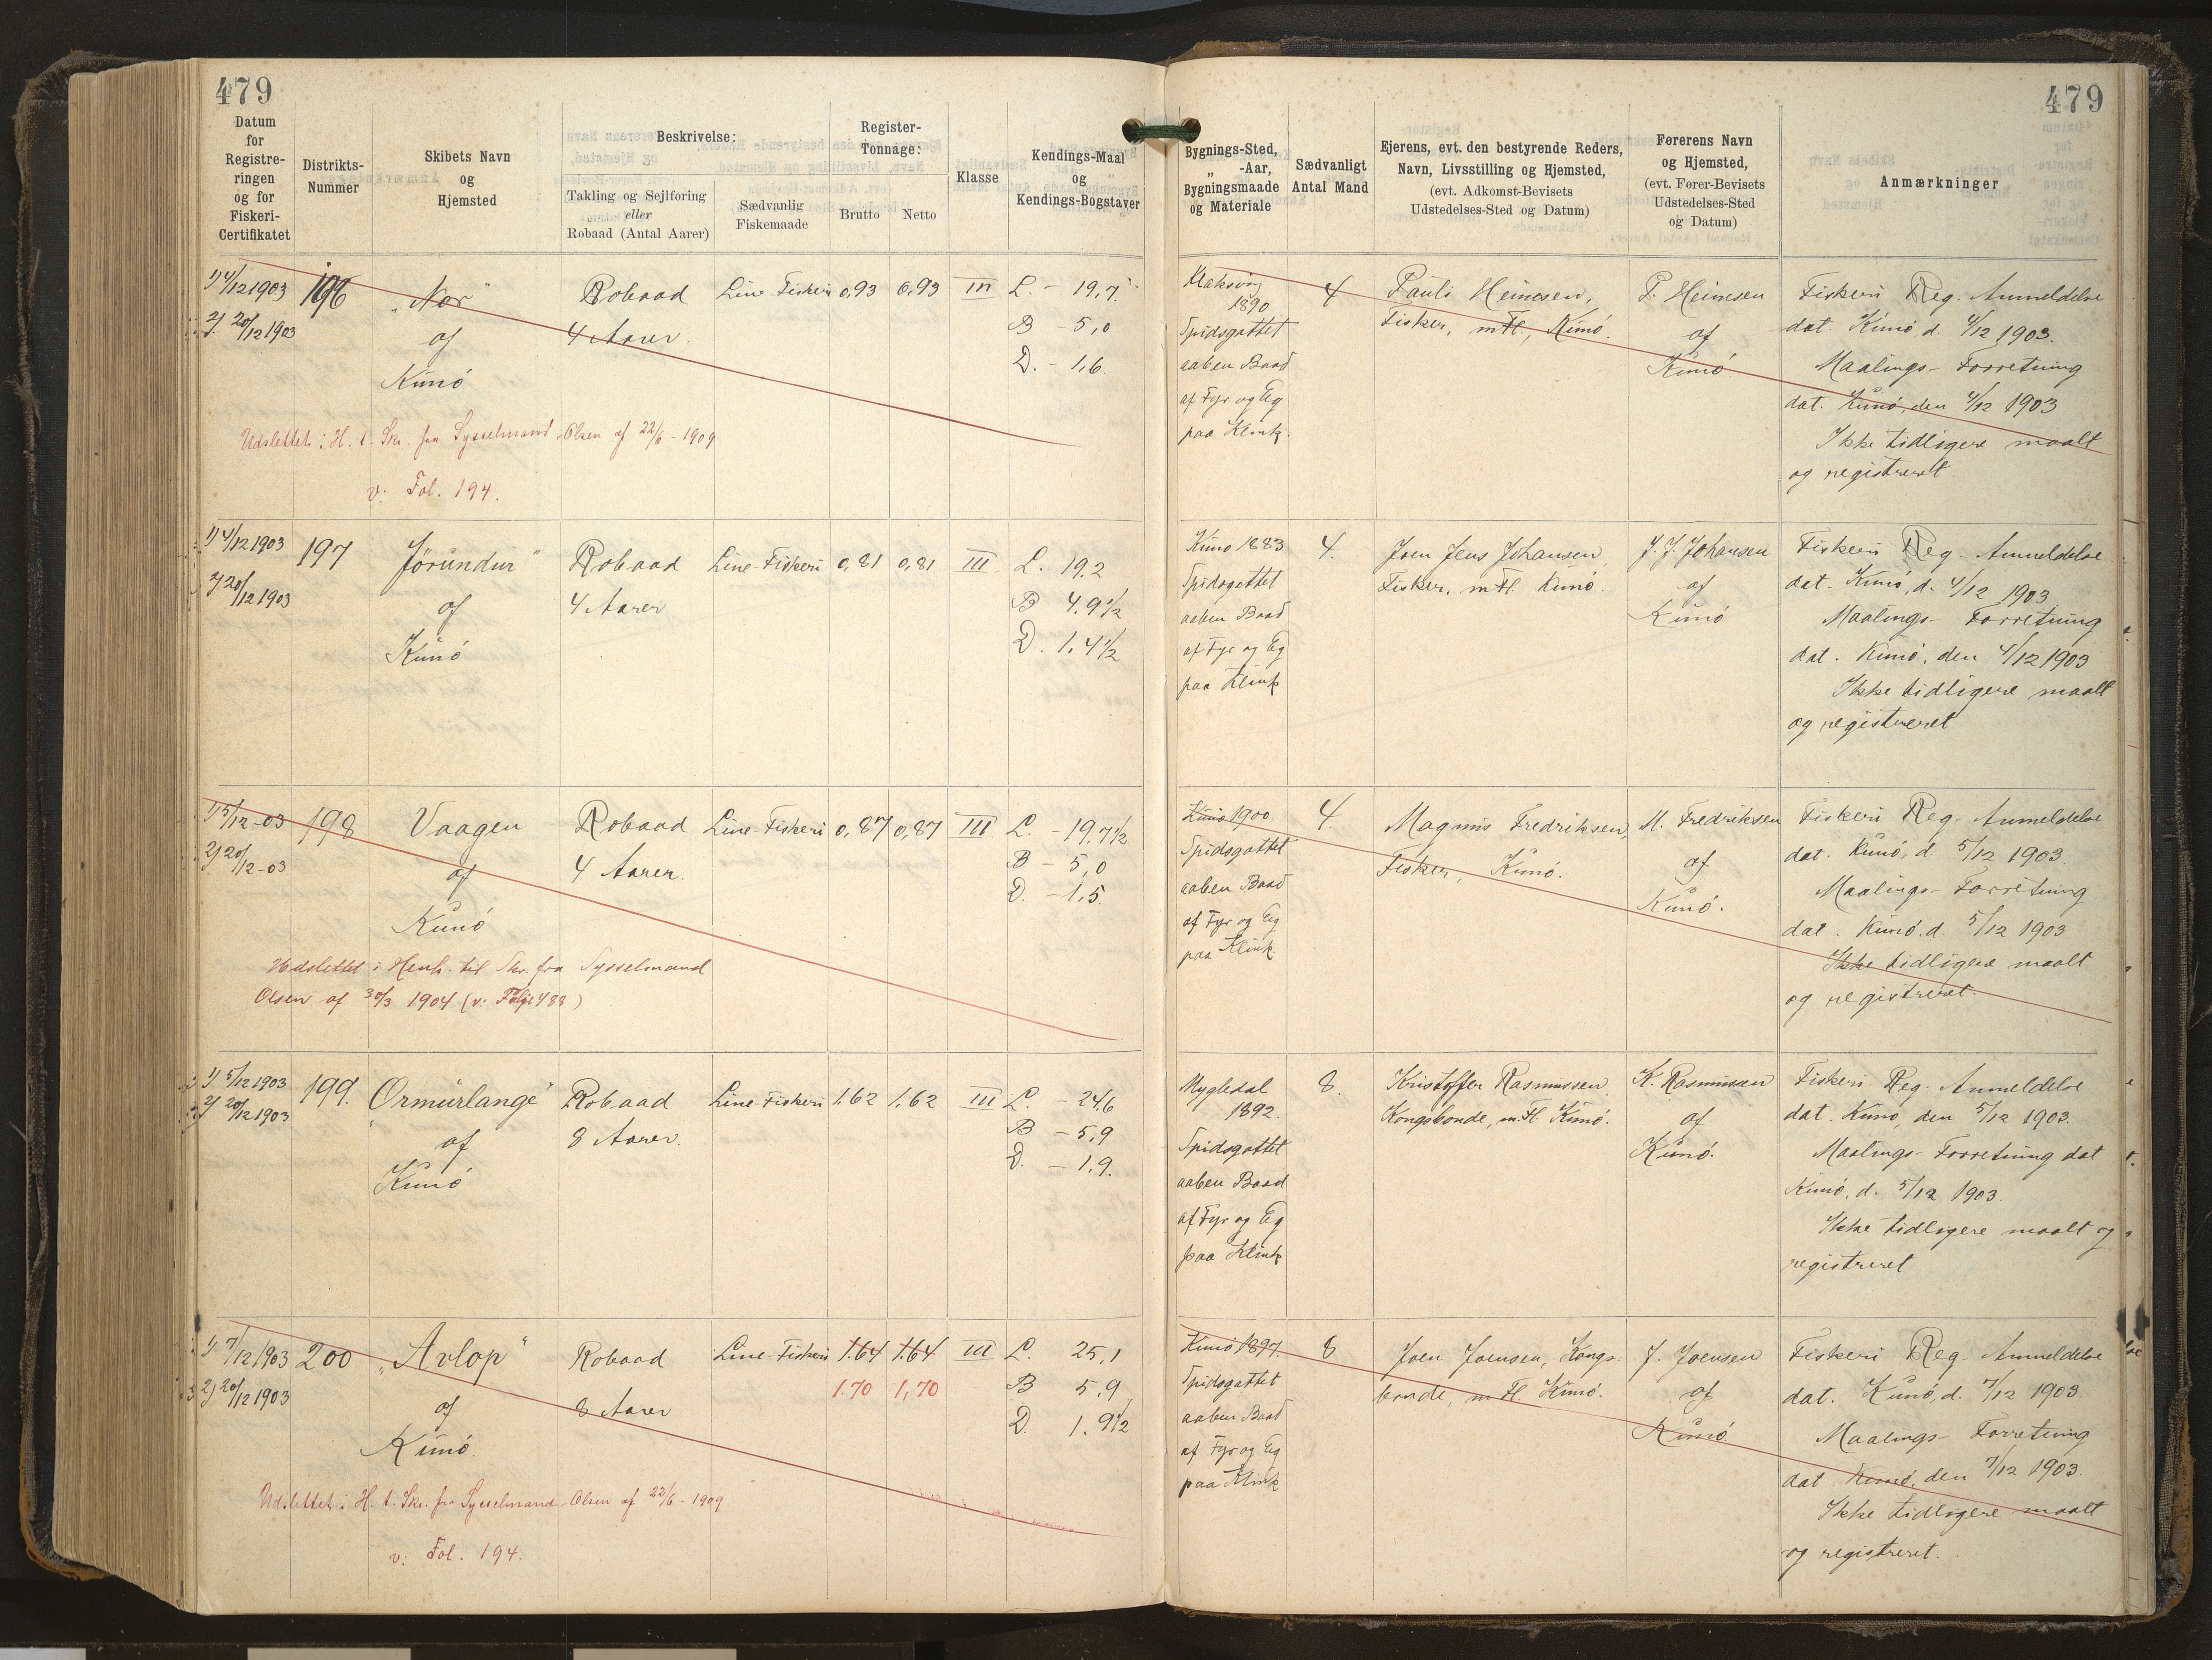 479
479
Datum for Registreringen og for Fiskeri-Certifikatet
Distrikts-Nummer
Skibets Navn og Hjemsted
Beskrivelse:
Takling og Sejlføring eller Robaad (Antal Aarer)
Sædvanlig Fiskemaade
Register-Tonnage:
Brutto
Netto
Klasse
Kendings-Maal og Kendings-Bogstaver
Bygnings-Sted, „ -Aar, Bygningsmaade og Materiale
Sædvanligt Antal Mand
Ejerens, evt. den bestyrende Reders, Navn, Livsstilling og Hjemsted, (evt. Adkomst-Bevisets Udstedelses-Sted og Datum)
Førerens Navn og Hjemsted, (evt. Fører-Bevisets Udstedelses-Sted og Datum)
Anmærkninger
1) 4/12 1903
2) 20/12 1903
196
„Nor"
af
Kunö
Robaad
4 Aarer.
Line-Fiskeri
0,93
0,93
III
L. - 19,7
B - 5,0
D. - 1,6
Klaksvig
1890
Spidsgattet
aaben Baad
af Fyr og Eg
paa Klink.
4
Pauli Heinesen,
Fisker, m Fl., Kunö.
P. Heinesen
af
Kunö
Fiskeri Reg. Anmeldelse
dat. Kunö d. 4/12 1903.
Maalings-Forretning
dat. Kunö, den 4/12 1903
Ikke tidligere maalt
og registreret.
Udslettet i H. t. Skr. fra Sysselmand Olsen af 22/6 - 1909
v. Fol. 194.
1) 4/12 1903
2) 20/12 1903
197
Jörundur"
af
Kunö
Robaad
4 Aarer
Line-Fiskeri
0,81
0,81
III
L. 19,2
B 4,9 1/2
D. 1,4 1/2
Kunö 1883
Spidsgattet
aaben Baad
af Fyr og Eg
paa Klink
4.
Joen Jens Johansen,
Fisker, m Fl. Kunö.
J. J. Johansen
af
Kunö
Fiskeri Reg. Anmeldelse
dat. Kunö, d. 4/12 1903
Maalings-Forretning
dat. Kunö, den 4/12 1903
Ikke tidligere maalt
og registreret
1) 5/12 -03
2) 20/12 -03
198
Vaagen
af
Kunö
Robaad
4 Aarer.
Line-Fiskeri
0,87
0,87
III
L. - 19,7 1/2
B - 5,0
D. - 1,5
Kunö 1900.
Spidsgattet
aaben Baad
af Fyr og Eg
paa Klink.
4
Magnus Fredriksen,
Fisker, Kunö.
M. Fredriksen
af
Kunö.
Fiskeri Reg. Anmeldelse
dat. Kunö, d. 5/12 1903.
Maalings-Forretning
dat. Kunö, d. 5/12 1903
Ikke tidligere maalt
og registreret.
Udslettet i Henh. til Skr. fra Sysselmand
Olsen af 30/3 1904 (v. Folie 488)
1) 5/12 1903
2) 20/12 1903
199.
„Ormurlange"
af
Kunö
Robaad
8 Aarer.
Line-Fiskeri
1.62
1,62
III
L. - 24,6
B - 5,9
D. - 1,9.
Mygledal
1892.
Spidsgattet
aaben Baad
af Fyr og Eg
paa Klink
8.
Kristoffer Rasmussen,
Kongsbonde, m. Fl. Kunö.
K. Rasmussen
af
Kunö.
Fiskeri Reg. Anmeldelse
dat. Kunö, den 5/12 1903.
Maalings-Forretning dat
Kunö, d. 5/12 1903.
Ikke tidligere maalt og
registreret
1) 7/12 1903
2) 20/12 1903
200
„Avlop"
af
Kunö.
Robaad
8 Aarer
Line-Fiskeri
1.64
1.64
1.70
1,70
III
L. 25,1
B 5,9
D. 1,9 1/2
Kunö 1897.
Spidsgattet
aaben Baad
af Fyr og Eg
paa Klink
8
Joen Joensen, Kongs-
bonde, m Fl. Kunö.
J. Joensen
af
Kunö.
Fiskeri Reg. Anmeldelse
dat. Kunö, d. 7/12 1903.
Maalings-Forretning
dat Kunö, den 7/12 1903.
Ikke tidligere maalt
og registreret.
Udslettet i H. t. Skr. fra Sysselmand Olsen af 22/6 - 1909
v. Fol. 194.